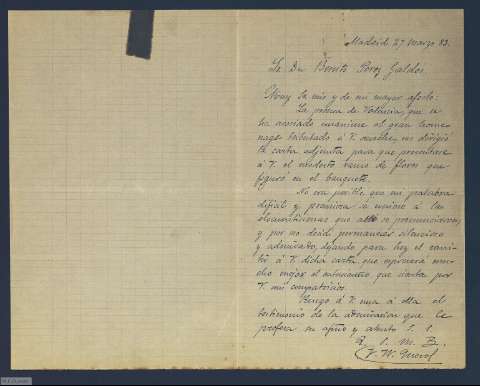 Madrid 27 Marzo 83.
Sr. Dn. Benito Perez Galdós.
Muy Sr. mio y de mi mayor afecto:
La prensa de Valencia, que se
ha asociado unanime al gran home-
nage tributado á V. anoche, me dirigió
la carta adjunta para que presentase
á V. el modesto ramo de flores que
figuró en el banquete.
No era posible que mi palabra
dificil y premiosa se uniese á las
que se pronunciaron,
y por eso decidí permanecer silencioso
y admirado, dejando para hoy el remi-
tir á V. dicha carta que espresará mu-
cho mejor el entusiasmo que sienten por
V. mis compatricios.
Ruego á V. una á ella el
testimonio de la admiracion que le
profesa su afmo y atento S. S.
Q. S. M. B.